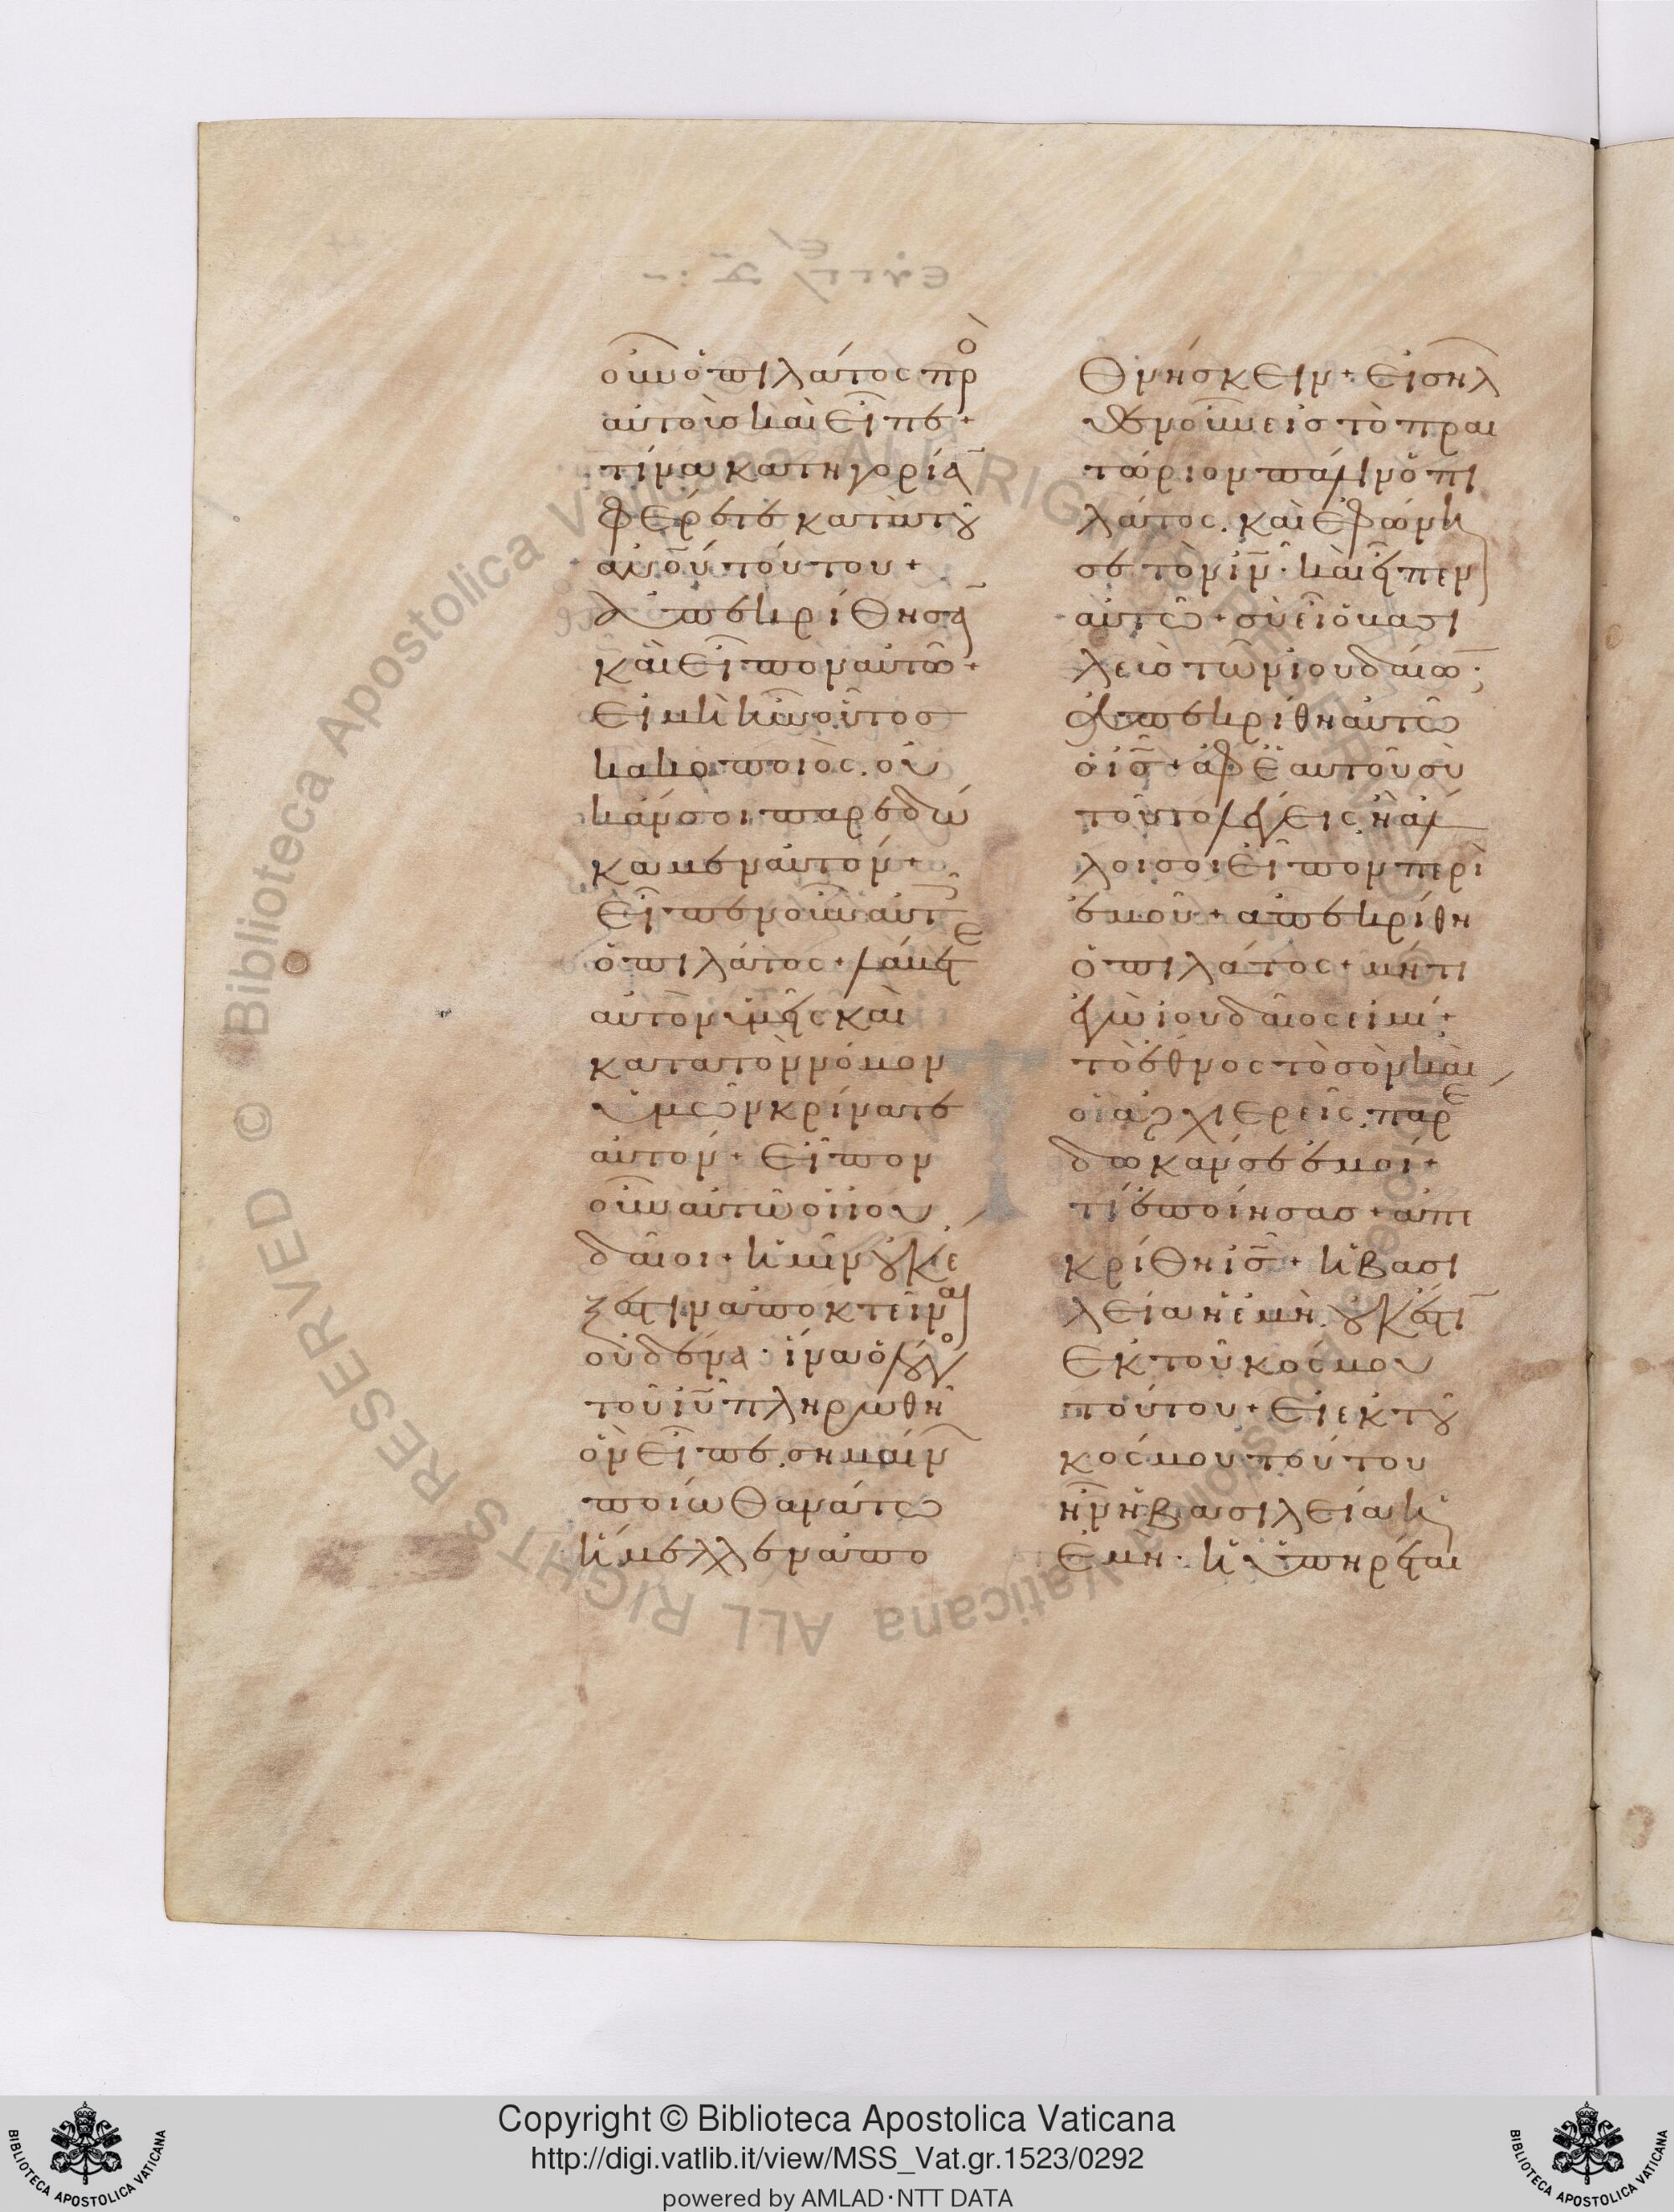 οὖν ὁ πιλάτος πρὸ
αὐτοὺσ καὶ εἶπε +
τίνα κατηγορίᾱ
φέρετε κατὰ τοῦ
ἀνοῦ τούτου +
ἀπεκρίθησᾱ
καὶ εἶπον αὐτῶ +
εἰ μὴ ἦν οὗτοσ
κακοποιὸς. οὐ
κἄν σοι παρεδώ
καμεν αὐτόν +
εἶπεν οὖν αὐτοῖς
ὁ πιλάτος + λάβετε
αὐτὸν ὑμεῖς καὶ
κατὰ τὸν νόμον
ὑμῶν κρίνατε
αὐτόν + εἶπον
οὖν αὐτῶ οἱ ἰου
δαῖοι + ἡμῖν οὐκ ἔ
ξεστιν ἀποκτεῖναι
οὐδένα · ἵνα ὁ λόγο
τοῦ ιῦ πληρωθῆ
ὃν εἶπε. σημαίν
ποίω θανάτω
ἤμελλεν ἀπο
θνήσκειν + εἰσῆλ
θεν οὖν εἰσ τὸ πραι
τώριον πάλιν ὁ πι
λάτος. καὶ ἐφώνη
σε τὸν ιν̄ · καὶ εἶπεν
αὐτῶ + σὺ εἶ ὁ βασι
λεὺσ τῶν ἰουδαίω̄;
ἀπεκρίθη αὐτῶ
ὁ ισ̄ + ἀφ ἑαυτοῦ σὺ
τοῦτο λέγεις ἢ ἄλ
λοι σοι εἶπον περὶ
ἐμοῦ + ἀπεκρίθη
ὁ πιλάτος + μήτι
ἐγὼ ἰουδαῖος εἰμι +
τὸ ἔθνος τὸ σὸν καὶ
οἱ ἀρχιερεῖς. παρέ
δωκάν σε ἐμοί +
τί ἐποίησασ + ἀπε
κρίθη ισ̄ + ἡ βασι
λεία ἡ ἐμὴ. οὐκ ἔστι
ἐκ τοῦ κόσμου
τούτου + εἰ ἐκ τοῦ
κόσμου τούτου
ἦν ἡ βασιλεία ἡ
ἐμη · ἡ ὑπηρέται
Copyright © Biblioteca Apostolica Vaticana
http://digi.vatlib.it/view/MSS_Vat.gr.1523/0292
powered by AMLAD·NTT DATA